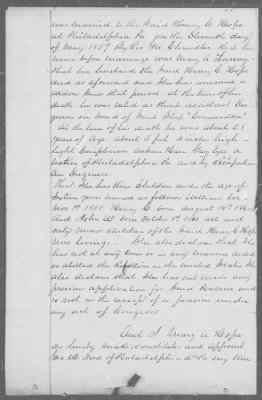 was married to the said Henry C Hope
at Philadelphia Pa on the Eleventh day
of May 1857 By Rev Chandler that her
name before marriage was Mary A
that her husband the said Henry C Hope
died as aforesaid and she has remained a
widow since that period. At the time of his
death he was rated as third assistant Eng-
ineer on board of said Ship "Commodore"
At the time of his death he was about 28
years of age about 5 feet 8 inches high -
light Complexion auburn Hair Gray Eyes a
native of Philadelphia Pa and by occupation
an Engineer.
That She has three Children under the age of
Sixteen years named as follows William born
Nov 1858. Henry C born August 10th 1860
and John W born October 1st 1861 all and
only minor children of the said Henry C Hope
now living. - She also declares that she
has not at any time or in any manner aided
or abetted the Rebellion in the United States She
also declares that she has not made any
previous application for said Pension and
is not in the receipt of a pension under
any act of Congress.
And I Mary A Hope
do hereby make, constitute and appoint
Geo W Ford of Philadelphia Pa my law